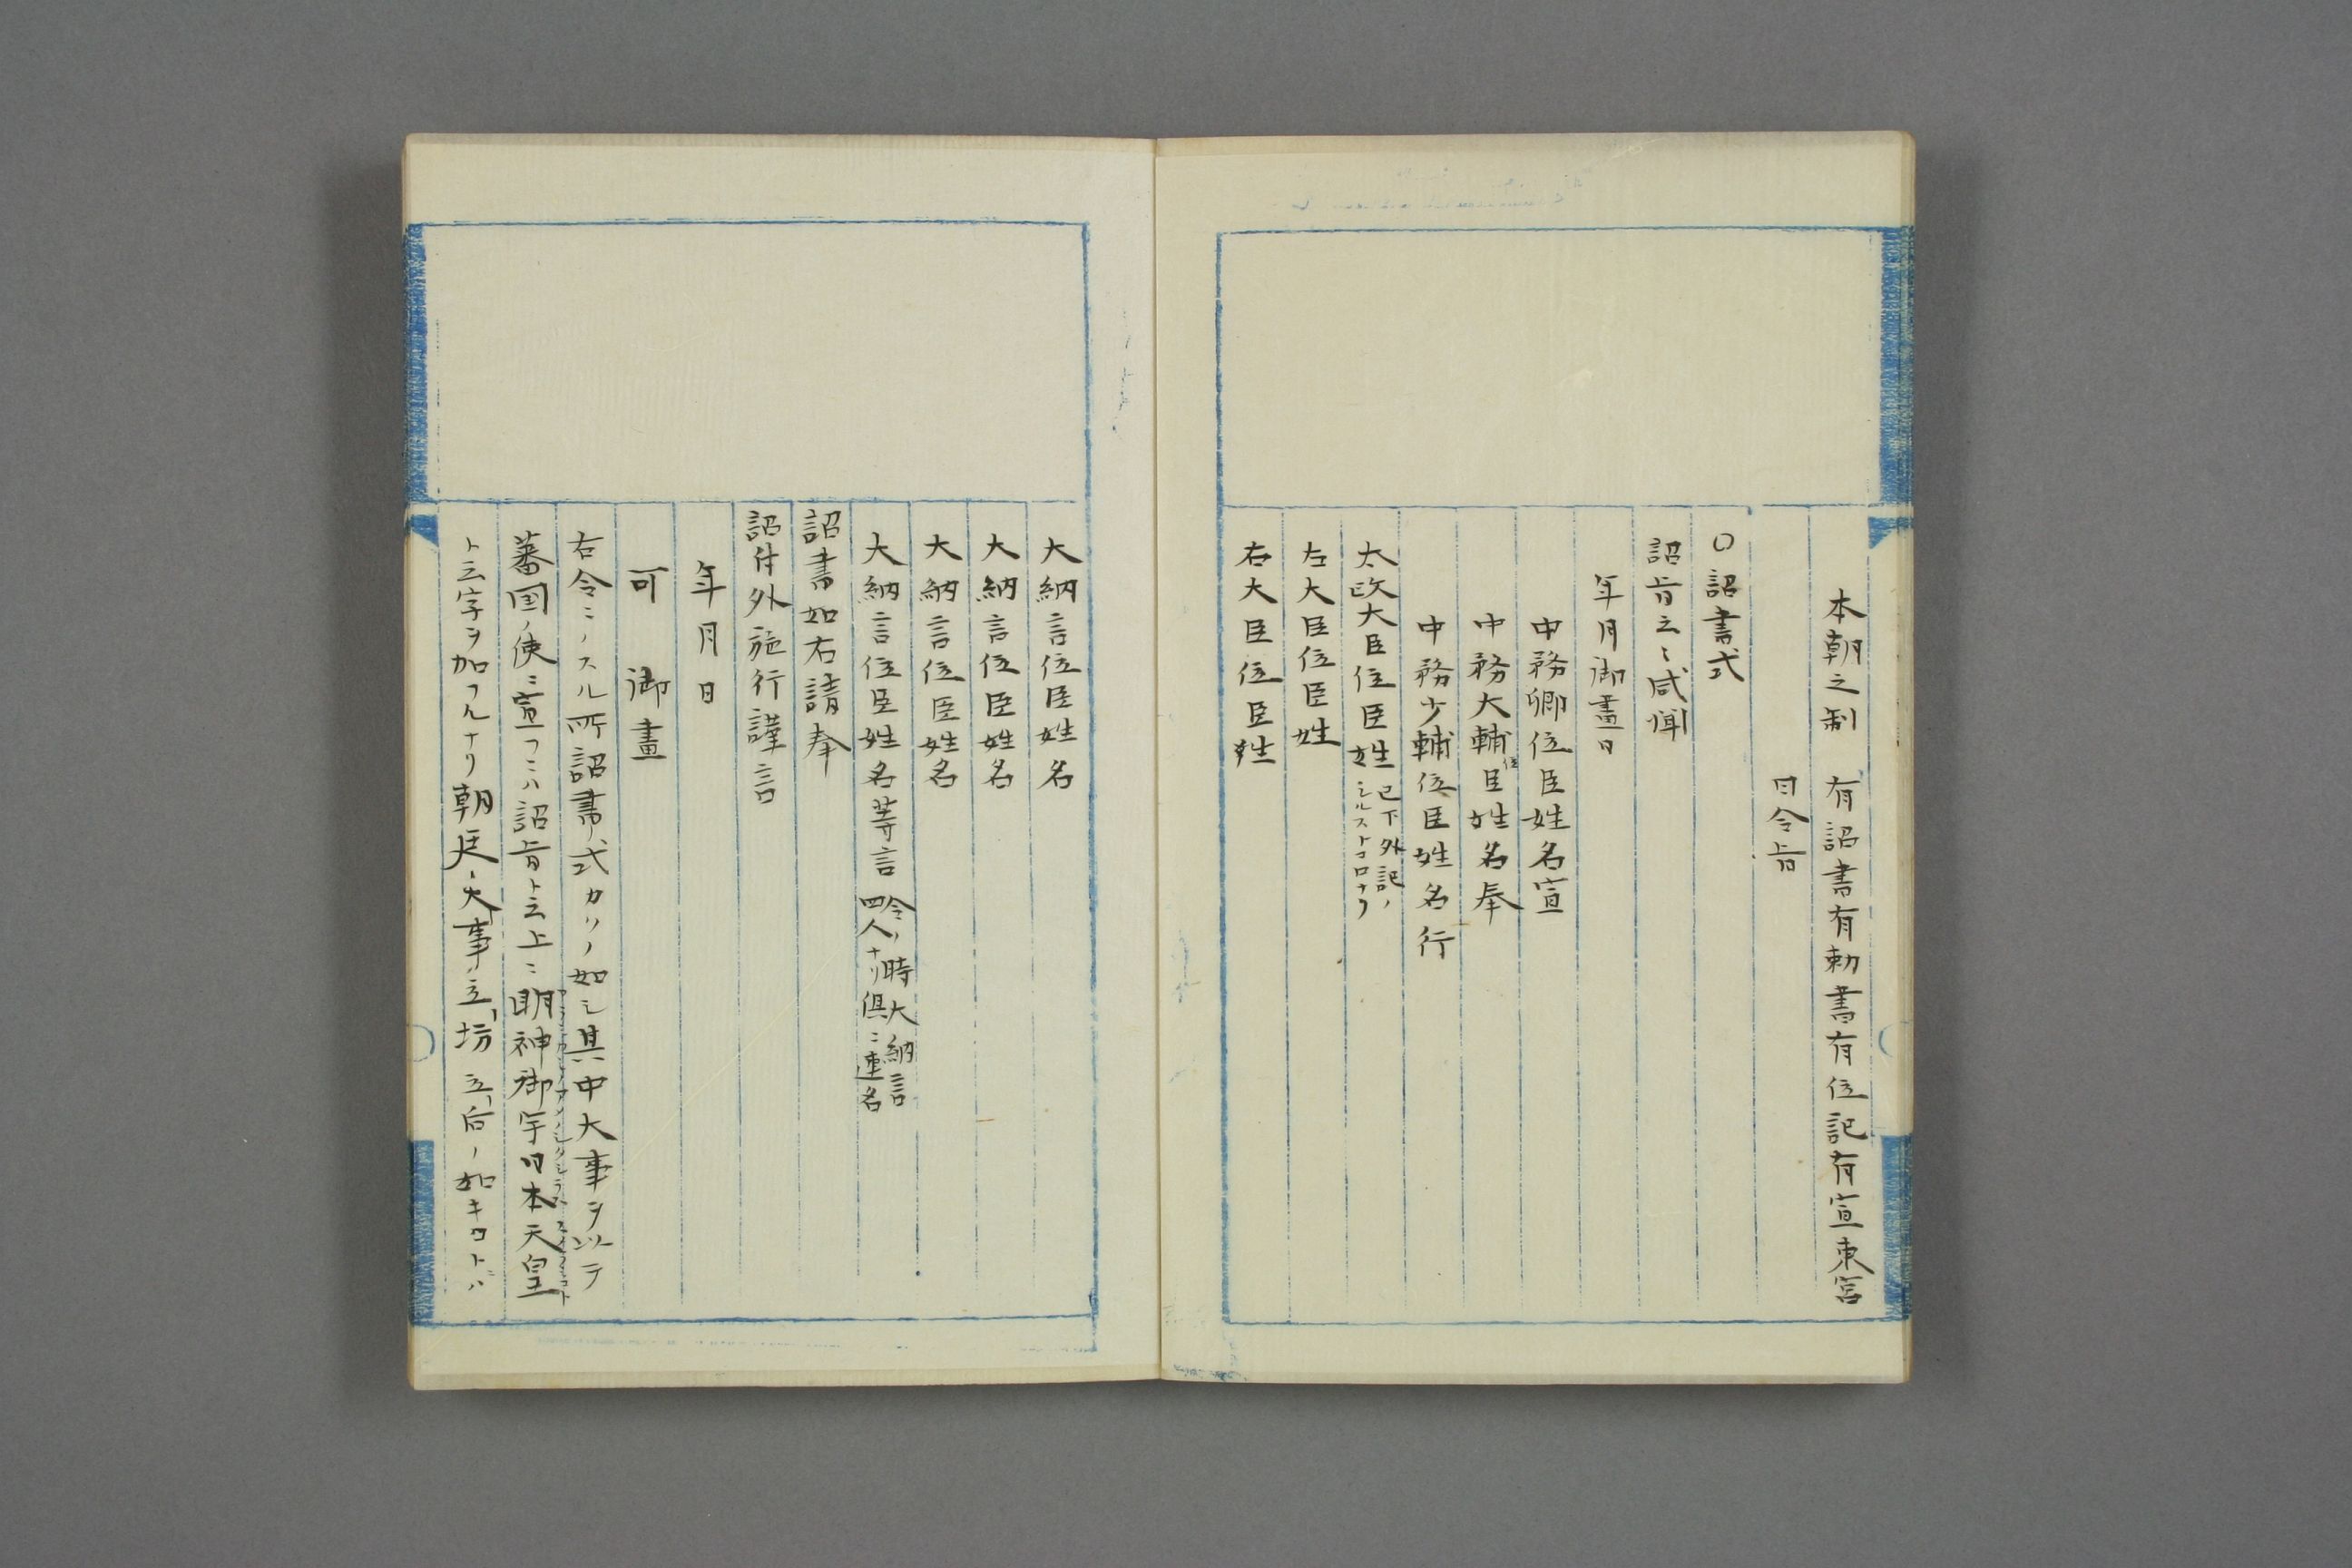 本朝之制 有詔書有勅書有位記有宣東宮
曰令旨
〇詔書式
詔旨云〻咸聞
年月御畫日
中務卿位臣姓名宣
中務大輔位臣姓名奉
中務少輔位臣姓名行
太政大臣位臣姓 已下外記ノ
シルストコロナリ
左大臣位臣姓
右大臣位臣姓
大納言位臣姓名
大納言位臣姓名
大納言位臣姓名
大納言位臣姓名等言 令ノ時大納言
四人ナリ倶ニ連名
詔書如右請奉
詔付外施行謹言
年月日
可 御畫
右令ニノスル所詔書式カクノ如シ其中大事ヲ以テ
蕃国ノ使ニ宣フニハ詔旨ト云上ニ明神御宇日本天皇
ト云字ヲ加フルナリ朝廷ノ大事立坊立后ノ如キコトニハ